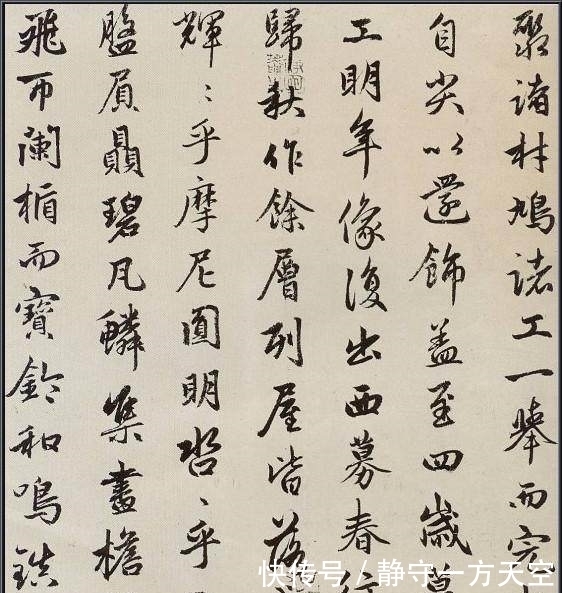 聚诸材鳩诸工一舉而完
自尖以還飾盖至四歲
工明年像復出西募春
歸秋作餘層列屋皆落
輝〻乎摩尼圓明㘴〻乎
盤眉贔碧凡鳞集畫檐
飛而闌楯而寶鈴和鳴鎮
快传号/静守一方天空